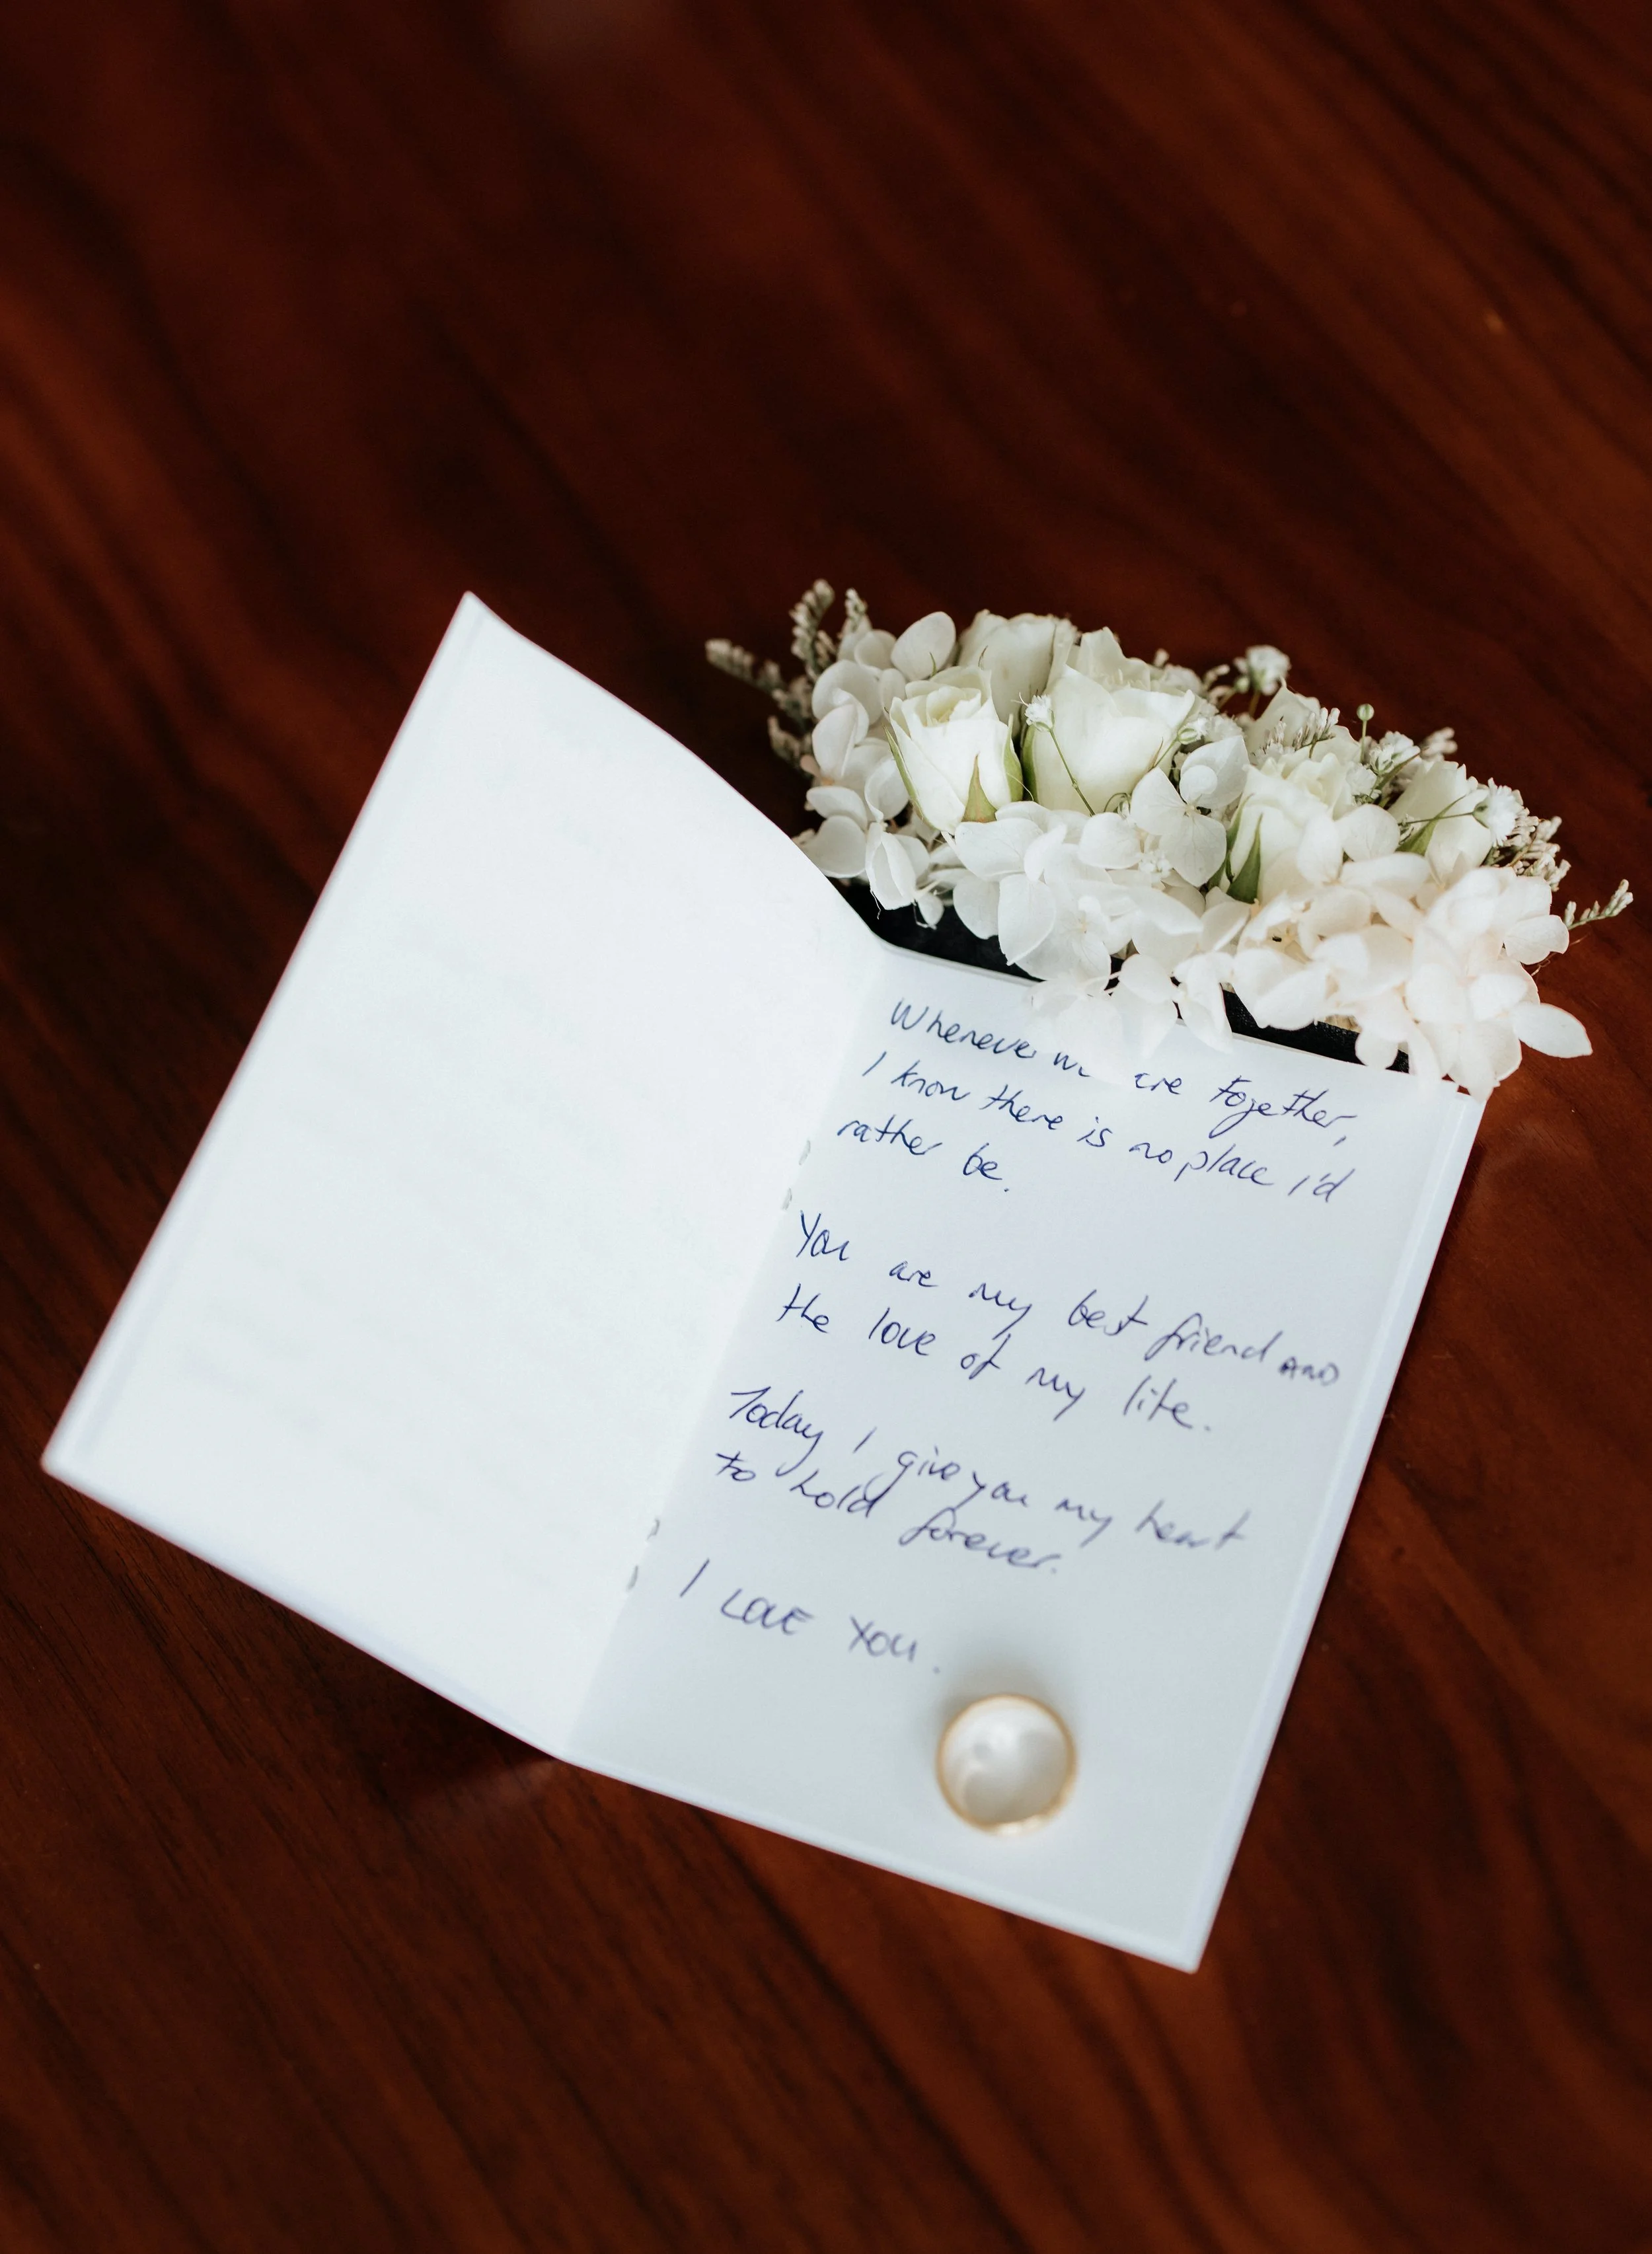 Whenever we are together,
I know there is no place I'd
rather be.
You are my best friend AND
the love of my life.
Today I give you my heart
to hold forever.
I LOVE YOU.